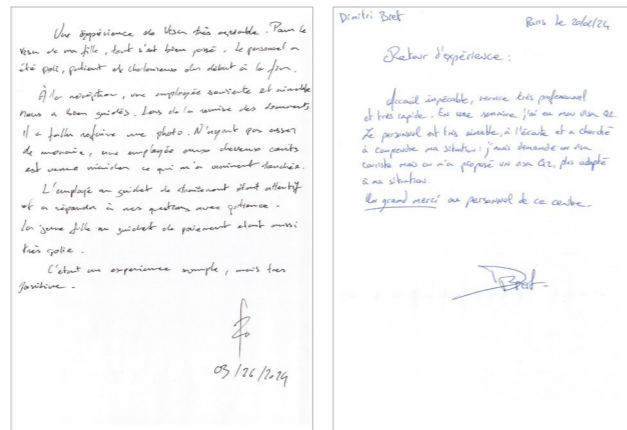 Une expérience de Visa très agréable. Pour le
visa de ma fille, tout s'est bien passé. Le personnel a
été poli, patient et chaleureux du début à la fin.
À la réception, une employée souriante et aimable
nous a bien guidés. Lors de la remise des documents
il a fallu refaire une photo. N'ayant pas assez
de monnaie, une employée aux cheveux courts
est venue m'aider ce qui m'a vraiment touchée.
L'employé au guichet de traitement était attentif
et a répondu à nos questions avec patience.
La jeune fille au guichet de paiement était aussi
très polie.
C'était une expérience simple, mais très
positive.
03/26/2024
Dimitri Bret
Paris le 20/02/24
Retour d'expérience :
Accueil impécable, service très professionnel
et très rapide. En une semaine j'ai eu mon visa Q2.
Le personnel est très aimable, à l'écoute et a cherché
à comprendre ma situation : j'avais demandé un visa
touriste mais on m'a proposé un visa Q2, plus adapté
à ma situation.
Un grand merci au personnel de ce centre.
Bret